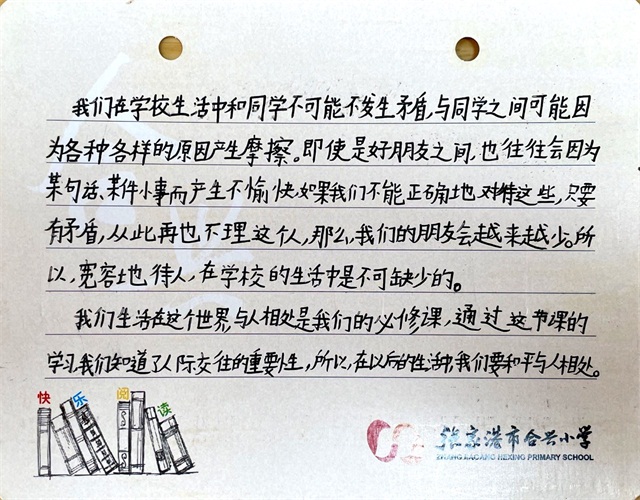 我们在学校生活中和同学不可能不发生矛盾,与同学之间可能因
为各种各样的原因产生摩擦。即使是好朋友之间,也往往会因为
某句话、某件小事而产生不愉快,如果我们不能正确地对待这些,只要
有矛盾,从此再也不理这个人,那么,我们的朋友会越来越少。所
以,宽容地待人,在学校的生活中是不可缺少的。
我们生活在这个世界,与人相处是我们的必修课,通过这节课的
学习我们知道了人际交往的重要性,所以,在以后的生活中,我们要和平与人相处。
快乐阅读
张家港市合兴小学
ZHANGJIAGANG HEXING PRIMARY SCHOOL